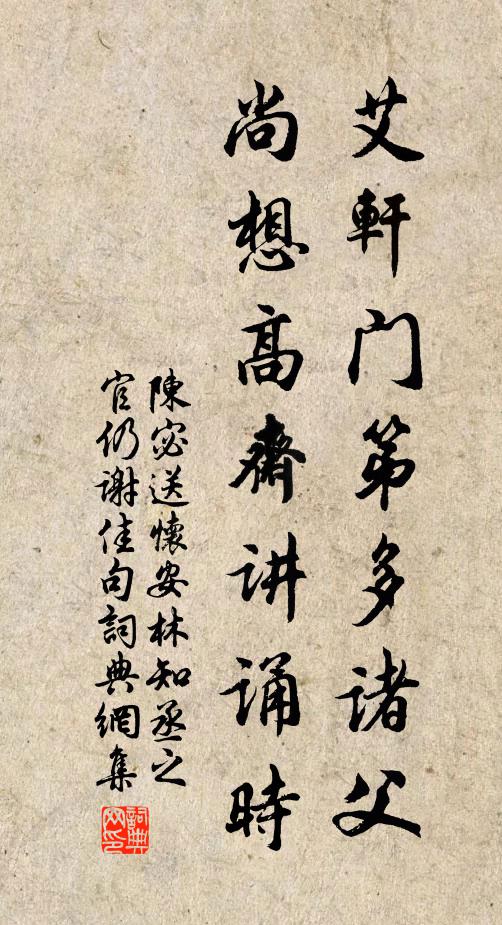 艾軒门第多诸父
尚想高齋讲诵時
陳宓送懷安林知丞之
官仍谢佳句詞典網集
詞典网印